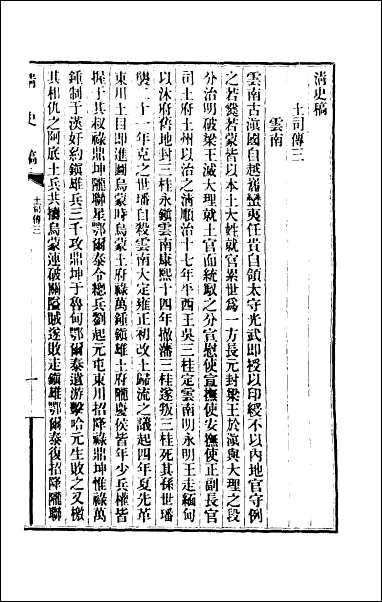 清史稿
土司傳三
雲南
雲南古滇國自越嶲蠻夷任貴自領太守光武即授以印綬不以內地官守例
之若爨若蒙皆以本土大姓就官累世爲一方長元封梁王於滇與大理之段
分治明破梁王滅大理就土官而統馭之分官慰使宣撫使安撫使正副長官
司土府土州以治之淸順治十七年平西王吳三桂定雲南明永明王走緬甸
以沐府舊地封三桂永鎮雲南康熙十四年撤藩三桂遂叛三桂死其孫世璠
襲二十一年克之世璠自殺雲南大定雍正初改土歸流之議起四年夏先革
東川土目即進圖烏蒙時烏蒙土府祿萬鍾鎮雄土府隴慶侯皆年少兵權皆
握于其叔祿鼎坤隴聯星鄂爾泰令總兵劉起元屯東川招降祿鼎坤惟祿萬
鍾制于漢奸約鎮雄兵三千攻鼎坤于魯甸鄂爾泰遣游擊哈元生敗之又檄
其相仇之阿底土兵共擣烏蒙連破關隘賊遂敗走鎮雄鄂爾泰復招降隴聯
清史稿
土司傳三
一